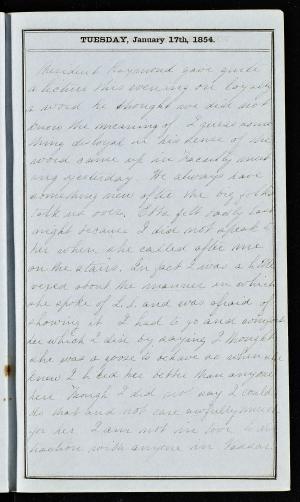 TUESDAY, January 17th, 1854.
President Raymond gave quite
a lecture this evening on loyalty
a word he thought we did not
know the meaning of. I guess some
thing disloyal in his sense of the
word came up in faculty meet
ing yesterday. We always have
something new after the big folks
talk us over. Etta felt badly last
night because I did not speak to
her when she called after me
on the stairs. In fact I was a little
vexed about the manner in which
she spoke of L.S. and was afraid of
showing it. I had to go and
her which I did by saying I thought
she was a goose to behave so when she
knew I liked her better than anyone
here. Though I did not say I could
do that and not care awfully much
for her. I am not in love to
with anyone in Vassar.